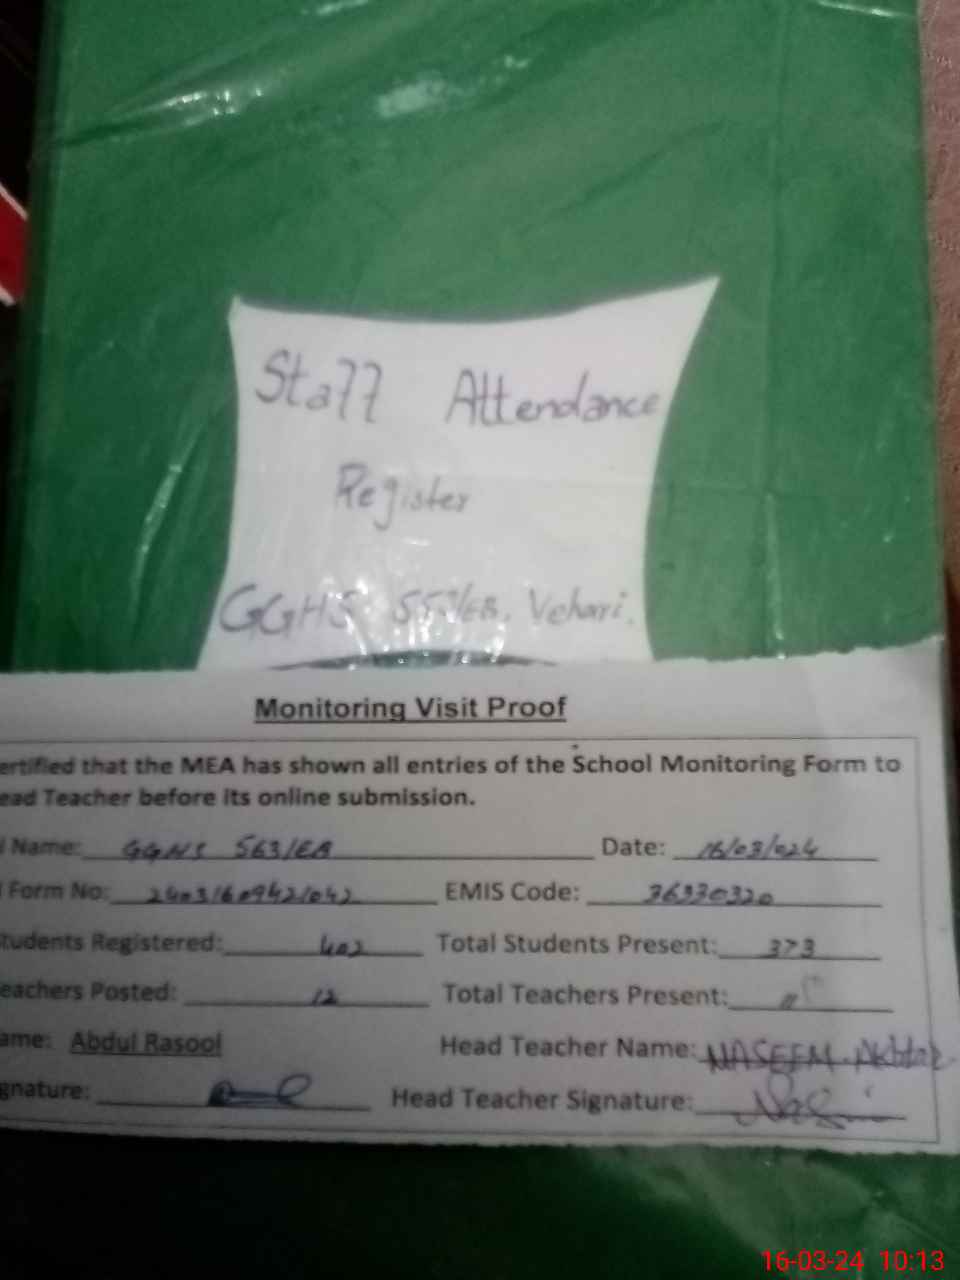 Staff Attendance
Register
GGHS 553/EB. Vehari.
Monitoring Visit Proof
ertified that the MEA has shown all entries of the School Monitoring Form to
ead Teacher before its online submission.
l Name: GGHS 563/EB Date: 16/03/024
Form No: EMIS Code: 36330320
tudents Registered: 402 Total Students Present: 373
eachers Posted: 12 Total Teachers Present: 11
ame: Abdul Rasool Head Teacher Name: NASEEM Akhtar
gnature: Head Teacher Signature:
16-03-24 10:13